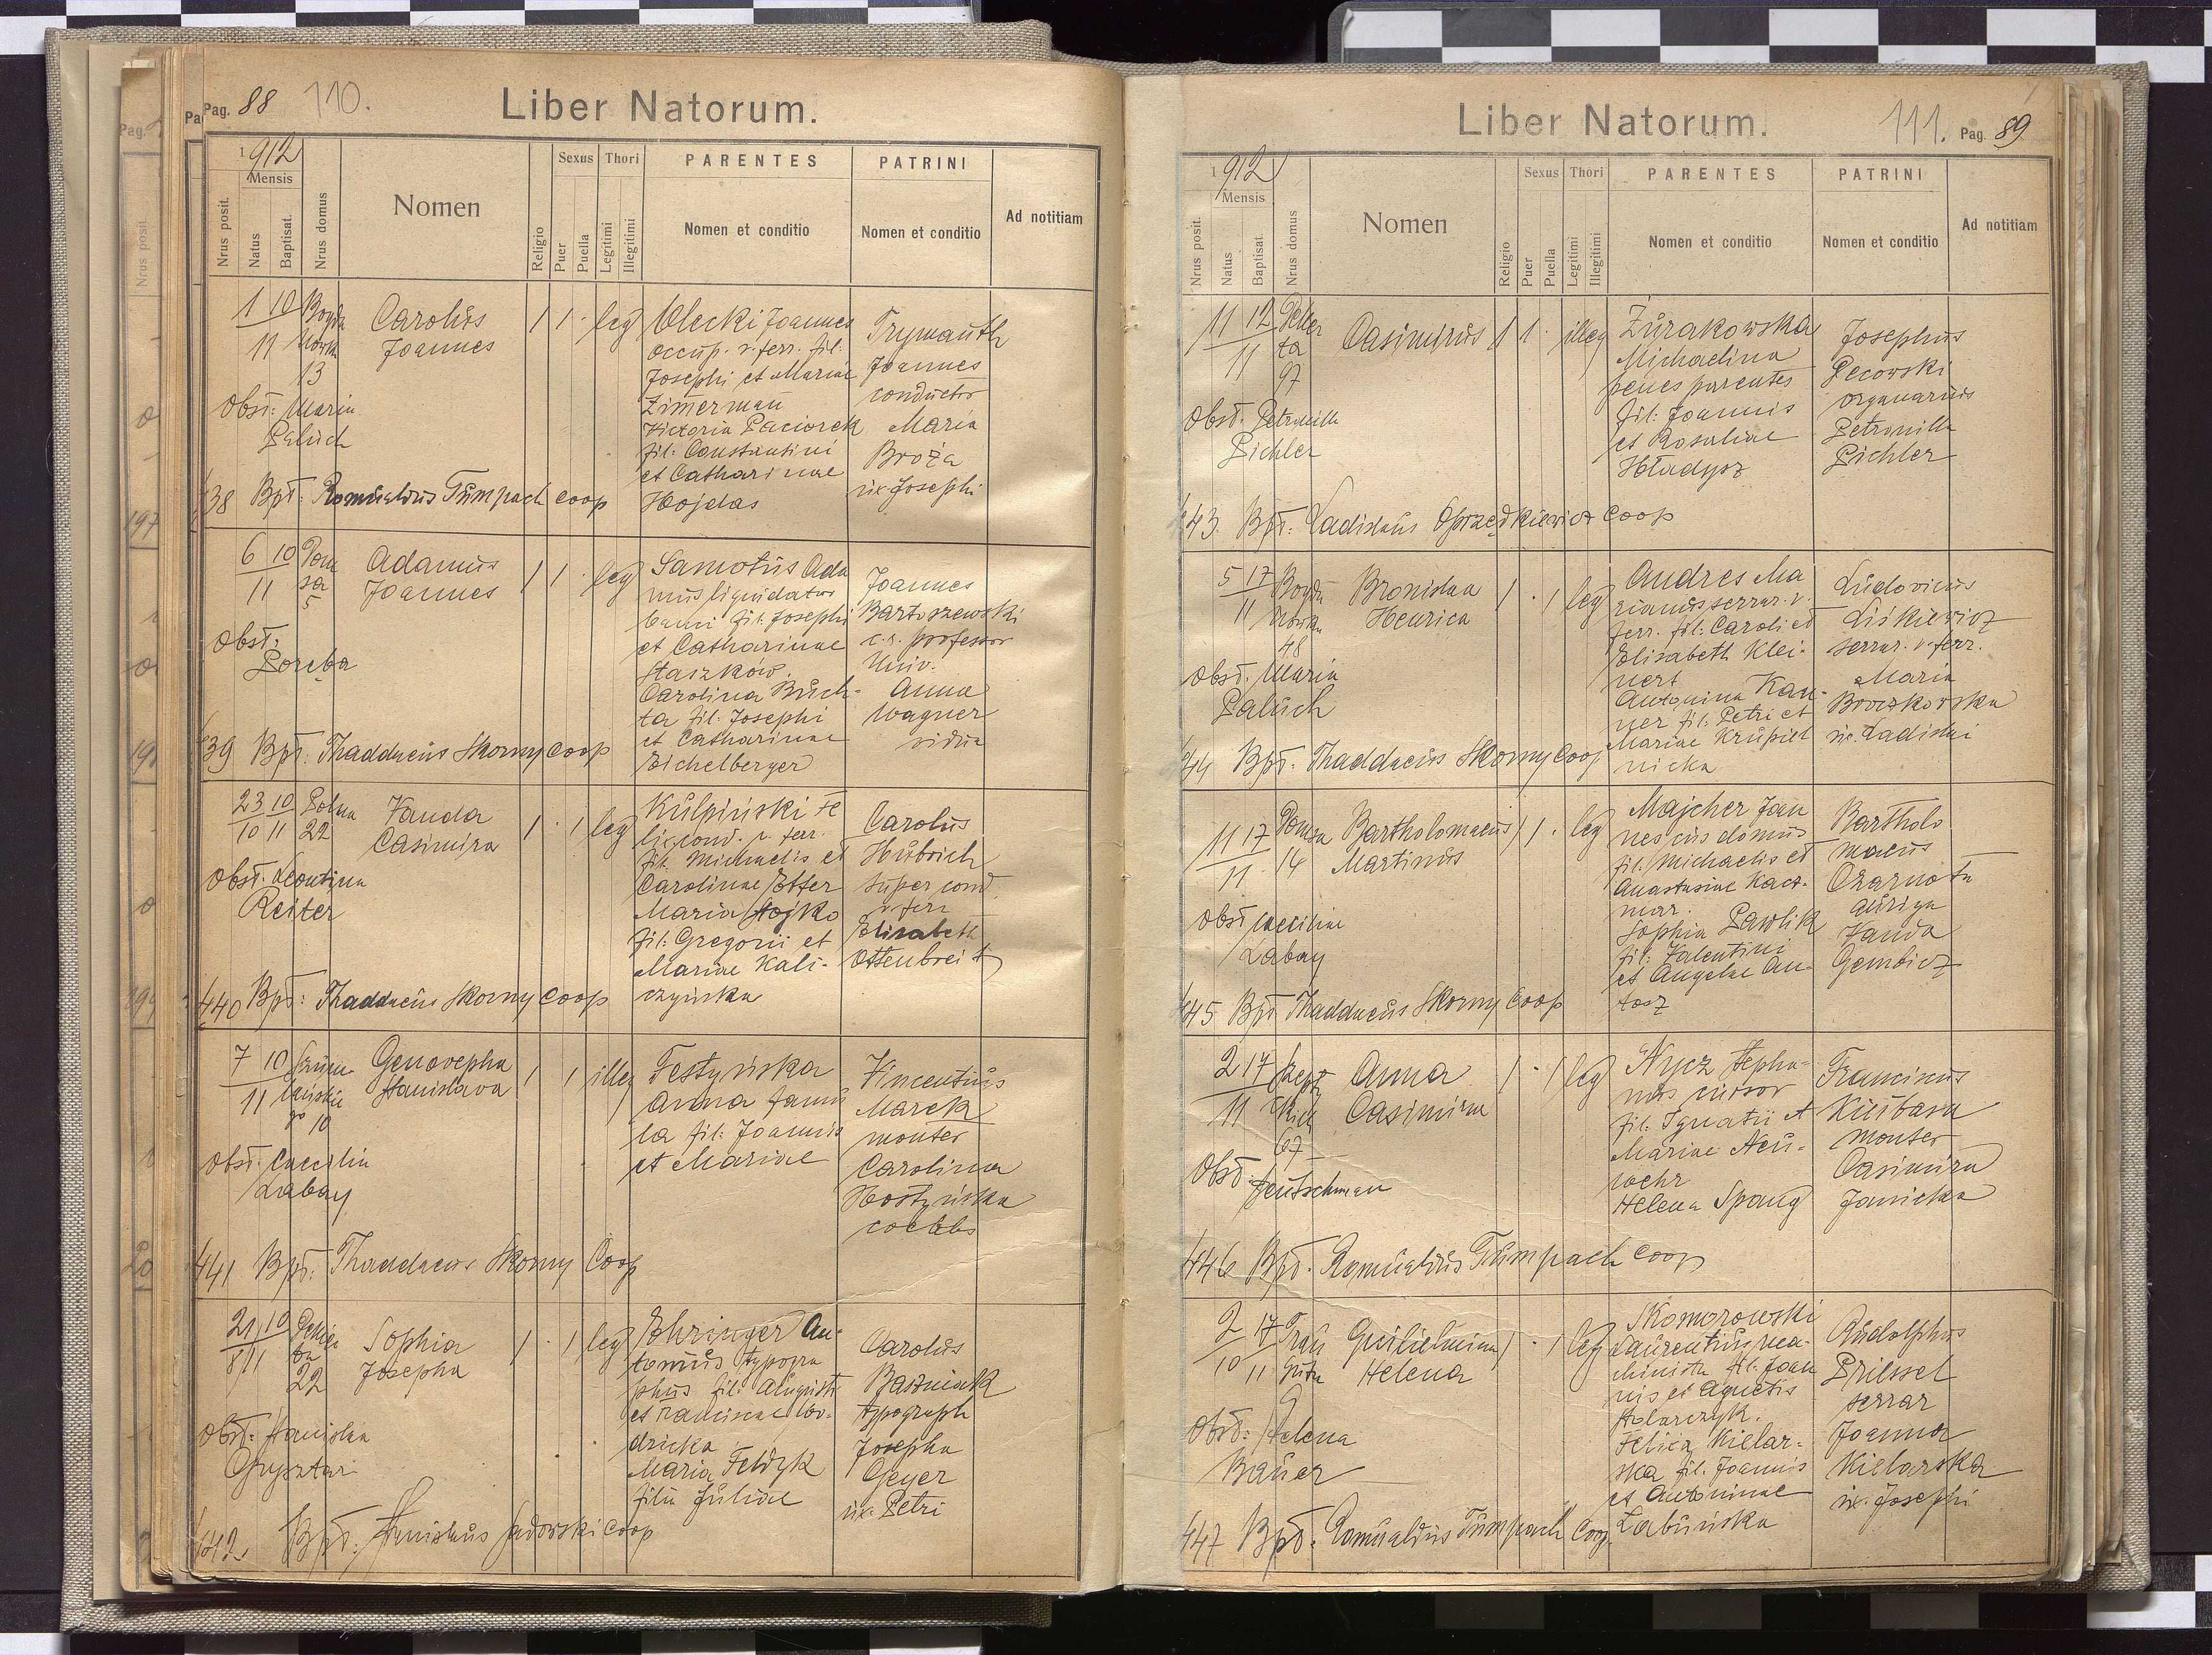 Pag. 88 110. Liber Natorum.
1912
Mensis
Nrus posit.
Natus
Baptisat.
Nrus domus
Nomen
Religio
Sexus
Puer
Puella
Thori
Legitimi
Illegitimi
PARENTES
Nomen et conditio
PATRINI
Nomen et conditio
Ad notitiam
1 10
11
13
Carolus
Joannes
1 1 · leg
Olecki Joannes
occup. v. ferr. fil:
Josephi et Mariae
Zimerman
Victoria Paciorek
fil: Constantini
et Catharinae
Hojdas
Trymauth
Joannes
conductor
Maria
Broża
ux. Josephi
Obst: Maria
Paluch
438 Bpt: Romualdus Tumpach coop
6 10
11
5
Adamus
Joannes
1 1 · leg
Samotus Ada
mus liquidator
fil. Josephi
et Catharinae
Staszków.
Carolina Buch-
ta fil. Josephi
et Catharinae
Eichelberger
Joannes
Bartoszewski
c.r. professor
Univ.
Anna
Wagner
vidua
Obst:
Poręba
439 Bpt. Thaddaeus Skorny coop
23 10
10 11
Polna
22
Vanda
Casimira
1 · 1 leg
Kulpiński Fe
lix cond. v. ferr.
fil. Michaelis et
Carolinae Etter
Maria Hojko
fil: Gregorii et
Mariae Kali-
czyńska
Carolus
Hubrich
super cond.
v. ferr
Elisabeth
Ottenbreit
Obst. Leontina
Reiter
440 Bpt: Thaddaeus Skorny coop
7 10
11
10
Genovepha
Stanislava
1 · 1 illeg
Testyńska
Anna famu
la fil: Joannis
et Mariae
Vincentius
Marek
monter
Carolina
Hostyńska
coelebs
Obst. Caecilia
Labay
441 Bpt: Thaddaeus Skorny Coop
21 10
8 11
22
Sophia
Josepha
1 · 1 leg
Ehringer An-
tonius typogra
phus fil. Augusti
et Franciscae
Maria Feldzyk
filia Juliae
Carolus
Baszniak
typograph
Josepha
Geyer
ux. Petri
Obst: Stanislaa
442 Bpt: Stanislaus Sadowski coop
Liber Natorum. 111. Pag. 89
1912
Mensis
Nrus posit.
Natus
Baptisat.
Nrus domus
Nomen
Religio
Sexus
Puer
Puella
Thori
Legitimi
Illegitimi
PARENTES
Nomen et conditio
PATRINI
Nomen et conditio
Ad notitiam
11 12
11
97
Casimirus
1 1 · illeg
Żurakowska
Michaelina
penes parentes
fil: Joannis
et Rosaliae
Hładysz
Josephus
Pecowski
organarius
Petronilla
Pichler
Obst. Petronilla
Pichler
443. Bpt: Ladislaus Oprzędkiewicz coop
5 17
11
48
Bronislaa
Henrica
1 · 1 leg
Andres Ma
rianus serrar. v.
ferr. fil: Caroli et
Elisabeth Klei-
nert
Antonina Kau-
ner fil: Petri et
Mariae Krupiel
nicka
Ludovicus
Liśkiewicz
serrar. v. ferr.
Maria
Broczkowska
ux. Ladislai
Obst. Maria
Paluch
444 Bpt. Thaddaeus Skorny coop
11 17
11
14
Bartholomaeus
Martinus
1 1 · leg
Majcher Joan
nes cus domus
fil. Michaelis et
Anastasiae Kacz-
mar.
Sophia Pawlik
fil: Valentini
et Angelae An-
tosz
Bartholo
maeus
Czarnota
auriga
Vanda
Gembicz
Obst Caeciliae
Labay
445 Bpt Thaddaeus Skorny Coop
2 17
11
67
Anna
Casimira
1 · 1 leg
Nycz Stepha-
nus cursor
fil. Ignatii et
Mariae Neu-
wehr
Helena Spang
Franciscus
Kiełbasa
monter
Casimira
Janicka
Obst.
Jeutschman
446 Bpt. Romualdus Tumpach coop
2 17
10 11
9
Guilielmina
Helena
1 · 1 leg
Skomorowski
Laurentius
fil. Joan
nis et Agnetis
Stolarczyk.
Felicia Kielar-
ska fil. Joannis
et Antoninae
Łabuńska
Rudolphus
Priessel
serrar
Joanna
Kielarska
ux. Josephi
Obst: Helena
Bauer
447 Bpt. Romualdus Tumpach Coop.